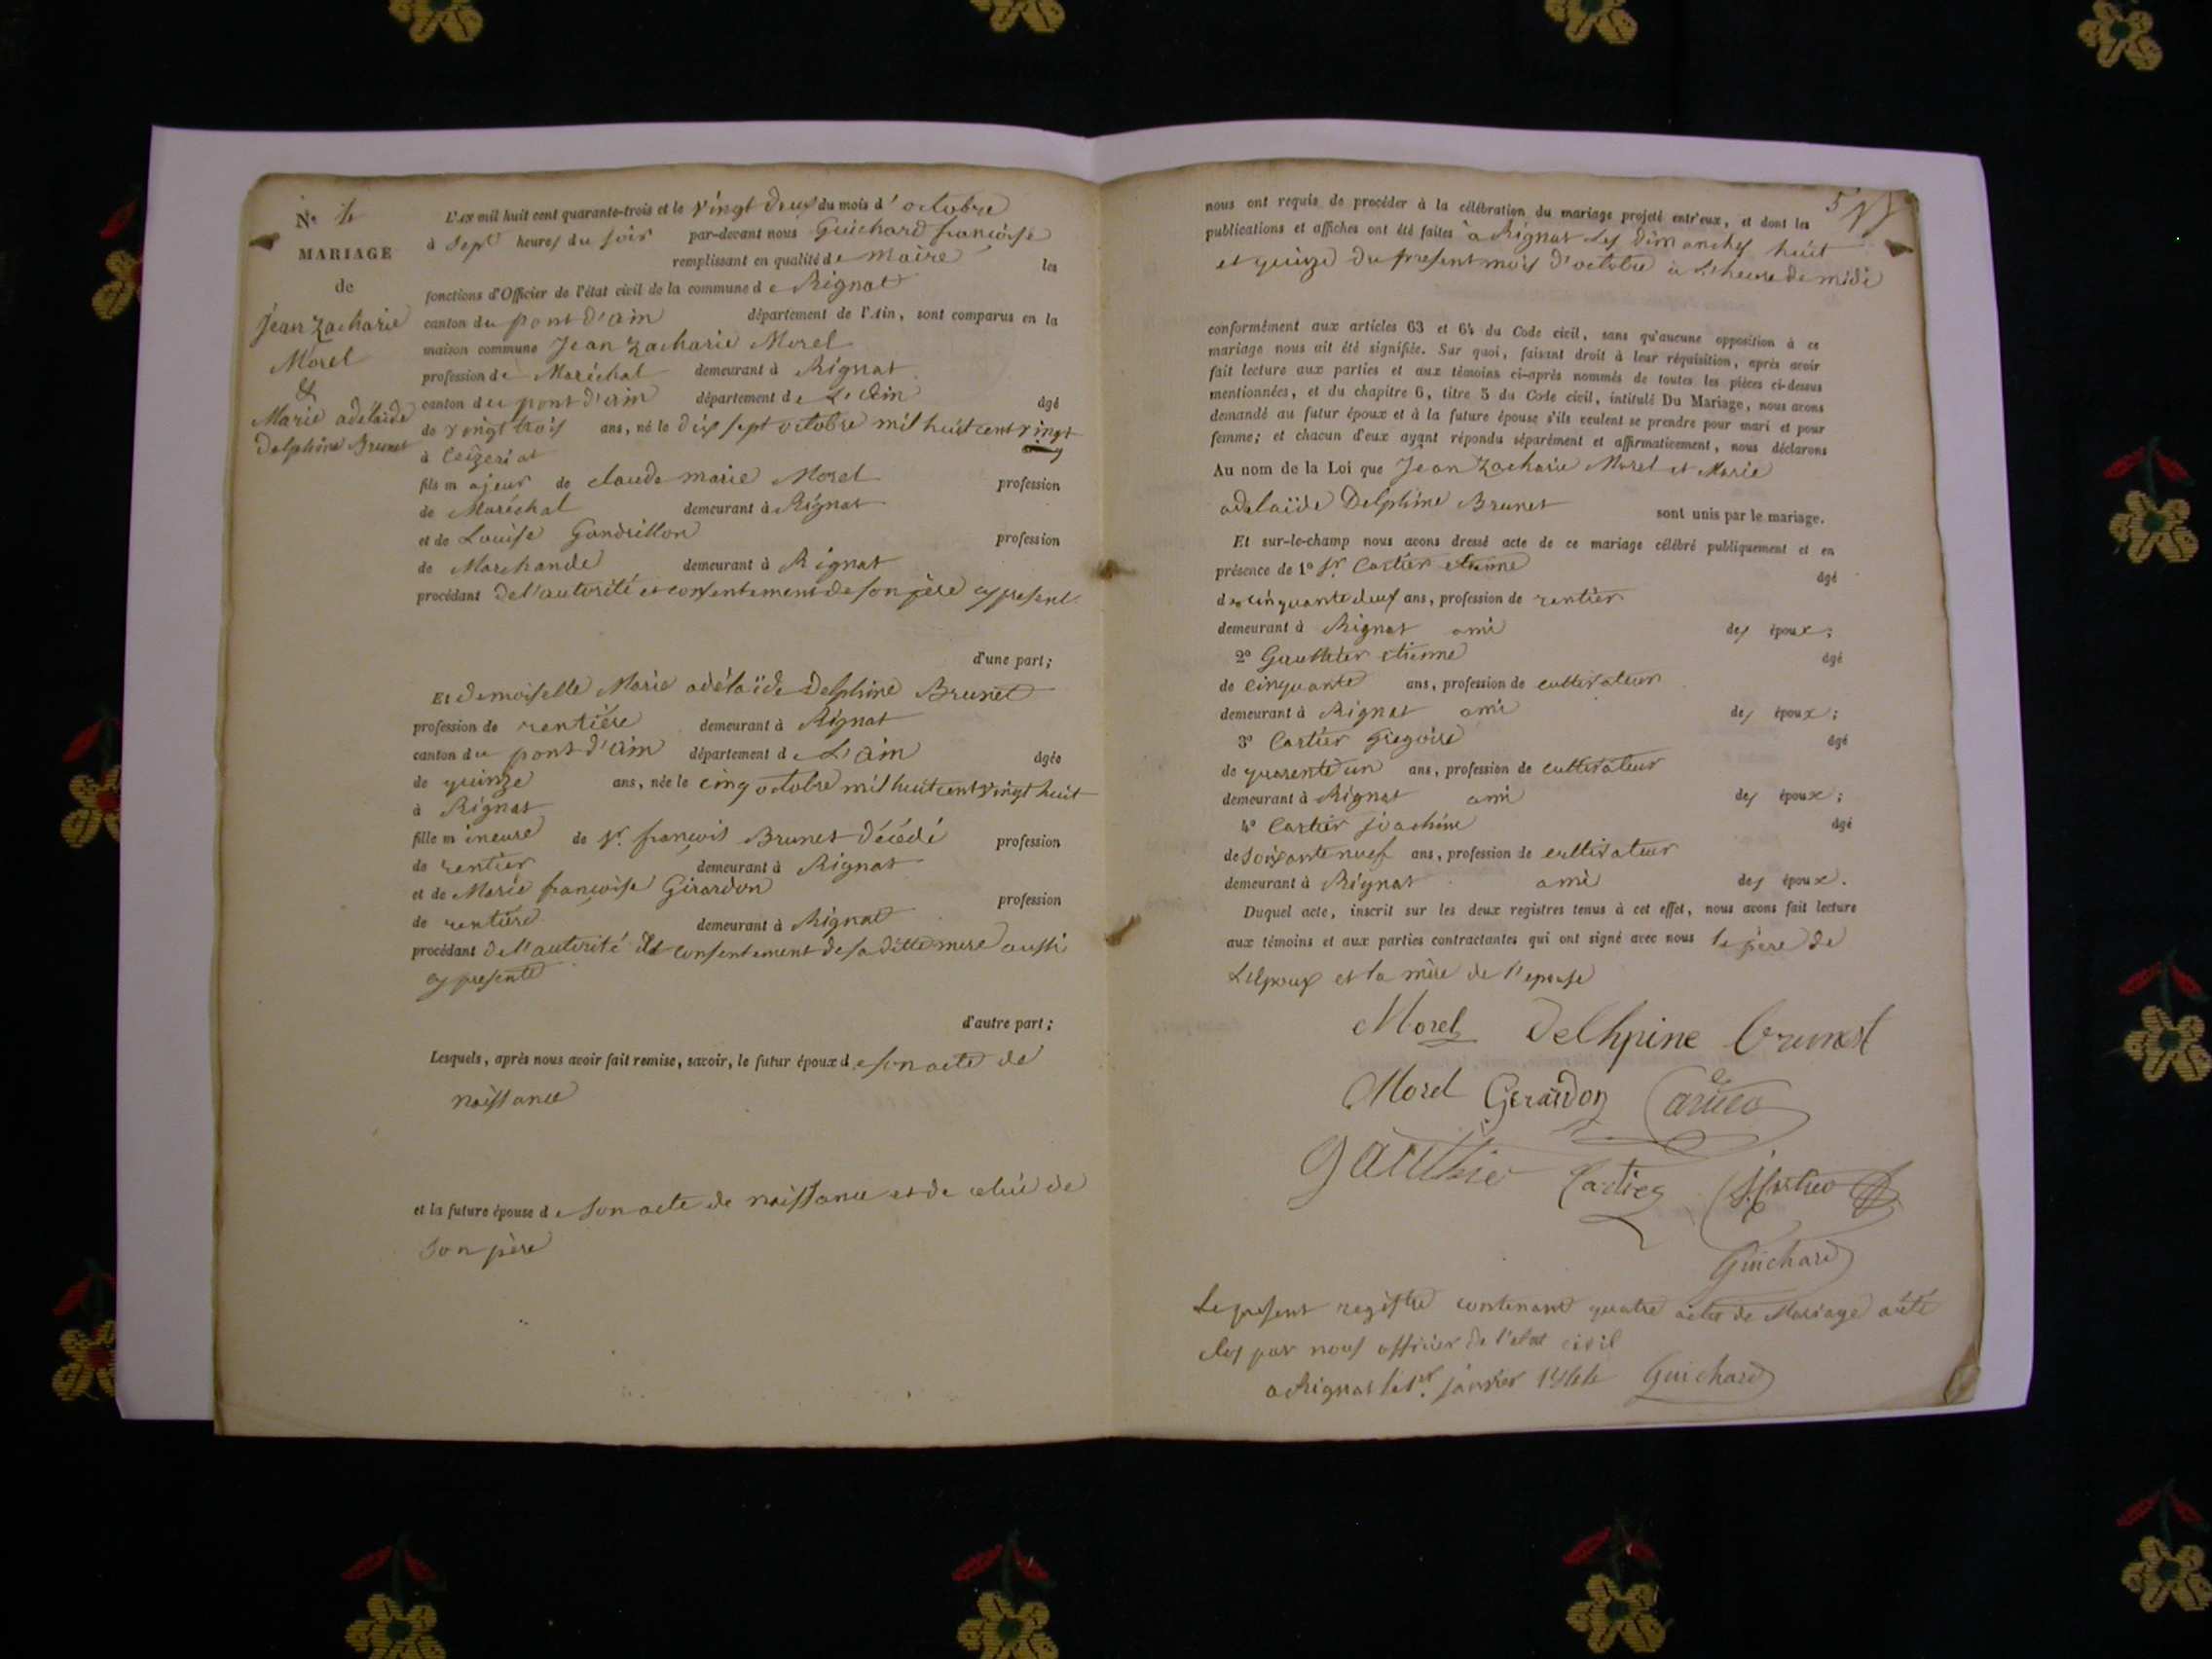 N° 4
MARIAGE
de
Jean Zacharie
Morel
&
Marie adélaïde
Delphine Brunet
L'AN mil huit cent quarante-trois et le vingt deux du mois d'octobre
à Sept heures du soir par-devant nous Guichard françoise
remplissant en qualité de maire les
fonctions d'Officier de l'état civil de la commune de Rignat
canton du pont d'ain département de l'Ain, sont comparus en la
maison commune Jean Zacharie Morel
profession de Maréchal demeurant à Rignat
canton du pont d'ain département de L'Ain âgé
de vingt trois ans, né le dix sept octobre mil huit cent vingt
à Ceizeriat
fils majeur de claude marie Morel profession
de Maréchal demeurant à Rignat
et de Louise Gandrillon profession
de Marchande demeurant à Rignat
procédant de l'autorité et consentement de son père cy present
d'une part;
Et demoiselle Marie adélaïde Delphine Brunet
profession de rentière demeurant à Rignat
canton du pont d'ain département de L'ain âgée
de quinze ans, née le cinq octobre mil huit cent vingt huit
à Rignat
fille mineure de Sr. françois Brunet décédé profession
de rentier demeurant à Rignat
et de Marie françoise Girardon profession
de rentière demeurant à Rignat
procédant de l'autorité et consentement de sa ditte mere aussi
cy presente
d'autre part;
Lesquels, après nous avoir fait remise, savoir, le futur époux de son acte de
naissance
et la future épouse de son acte de naissance et de celui de
son père
nous ont requis de procéder à la célébration du mariage projeté entr'eux, et dont les
publications et affiches ont été faites à Rignat les dimanches huit
et quinze du present mois d'octobre à l'heure de midi
conformément aux articles 63 et 64 du Code civil, sans qu'aucune opposition à ce
mariage nous ait été signifiée. Sur quoi, faisant droit à leur réquisition, après avoir
fait lecture aux parties et aux témoins ci-après nommés de toutes les pièces ci-dessus
mentionnées, et du chapitre 6, titre 5 du Code civil, intitulé Du Mariage, nous avons
demandé au futur époux et à la future épouse s'ils veulent se prendre pour mari et pour
femme; et chacun d'eux ayant répondu séparément et affirmativement, nous déclarons
Au nom de la Loi que Jean Zacharie Morel et Marie
adelaïde Delphine Brunet sont unis par le mariage.
Et sur-le-champ nous avons dressé acte de ce mariage célébré publiquement et en
présence de 1° Sr. Cartier etienne âgé
de cinquante deux ans, profession de rentier
demeurant à Rignat ami des époux;
2° Gauthier etienne âgé
de cinquante ans, profession de cultivateur
demeurant à Rignat ami des époux;
3° Cartier Gregoire âgé
de quarente un ans, profession de cultivateur
demeurant à Rignat ami des époux;
4° Cartier joachim âgé
de soixante neuf ans, profession de cultivateur
demeurant à Rignat ami des époux.
Duquel acte, inscrit sur les deux registres tenus à cet effet, nous avons fait lecture
aux témoins et aux parties contractantes qui ont signé avec nous le père de
L'Epoux et la mère de l'epouse
Morel Delhpine brunet
Morel Gerardon
Gauthier Cartier
Guichard
Le present registre contenant quatre actes de Mariage a été
clos par nous officier de l'etat civil
a Rignat le 1er janvier 1844 Guichard